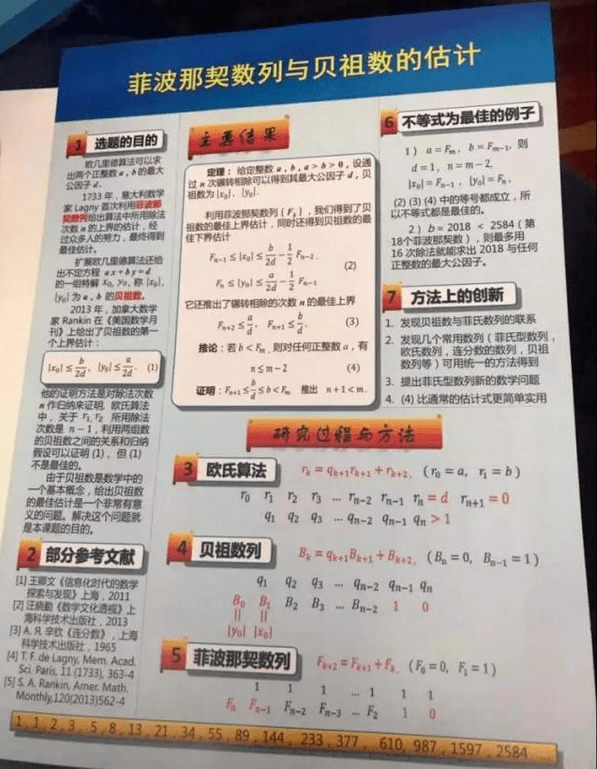 菲波那契数列与贝祖数的估计
1 选题的目的
欧几里德算法可以求
出两个正整数 a , b 的最大
公因子 d.
1733 年，意大利数学
家 Lagny 首次利用菲波那
契数列给出算法中所用除法
次数 n 的上界的估计，经
过众多人的努力，最终得到
最佳估计。
扩展欧几里德算法还给
出不定方程 ax + by = d
的一组特解 x₀, y₀, 称 |x₀|,
|y₀| 为 a, b 的贝祖数。
2013 年，加拿大数学
家 Rankin 在《美国数学月
刊》上给出了贝祖数的第一
个上界估计：
|x₀| ≤ b/2d, |y₀| ≤ a/2d. (1)
他的证明方法是对除法次数
n 作归纳来证明, 欧氏算法
中，关于 r₁, r₂ 所用除法
次数是 n − 1，利用两组数
的贝祖数之间的关系和归纳
假设可以证明 (1)、但 (1)
不是最佳的。
由于贝祖数是数学中的
一个基本概念，给出贝祖数
的最佳估计是一个非常有意
义的问题。解决这个问题就
是本课题的目的。
2 部分参考文献
[1] 王卿文《信息化时代的数学
探索与发现》上海，2011
[2] 汪晓勤《数学文化透视》上
海科学技术出版社，2013
[3] А. Я. 辛钦《连分数》，上海
科学技术出版社，1965
[4] T. F. de Lagny, Mem. Acad.
Sci. Paris, 11 (1733), 363-4
[5] S. A. Rankin, Amer. Math.
Monthly,120(2013)562-4
主要结果
定理：给定整数 a , b , a > b > 0 , 设通
过 n 次辗转相除可以得到其最大公因子 d , 贝
祖数为 |x₀|, |y₀|.
利用菲波那契数列 { Fₖ } , 我们得到了贝
祖数的最佳上界估计，同时还得到贝祖数的最
佳下界估计
Fₙ₋₁ ≤ |x₀| ≤ b/2d − 1/2 Fₙ₋₂.
(2)
Fₙ ≤ |y₀| ≤ a/2d − 1/2 Fₙ₋₁
它还推出了辗转相除的次数 n 的最佳上界
Fₙ₊₂ ≤ a/d, Fₙ₊₁ ≤ b/d. (3)
推论：若 b < Fₘ , 则对任何正整数 a , 有
n ≤ m − 2 (4)
证明：Fₙ₊₁ ≤ b/d ≤ b < Fₘ 推出 n + 1 < m.
6 不等式为最佳的例子
1 ) a = Fₘ, b = Fₘ₋₁, 则
d = 1, n = m − 2,
|x₀| = Fₙ₋₁ , |y₀| = Fₙ,
(2) (3) (4) 中的等号都成立，所
以不等式都是最佳的。
2 ) b = 2018 < 2584 ( 第
18个菲波那契数 ) , 则最多用
16 次除法就能求出 2018 与任何
正整数的最大公因子。
7 方法上的创新
1. 发现贝祖数与菲氏数列的联系
2. 发现几个常用数列 ( 菲氏型数列，
欧氏数列，连分数的数列，贝祖
数列等 ) 可用统一的方法得到
3. 提出菲氏型数列新的数学问题
4. (4) 比通常的估计式更简单实用
研究过程与方法
3 欧氏算法 rₖ = qₖ₊₁rₖ₊₁ + rₖ₊₂, ( r₀ = a, r₁ = b )
r₀ r₁ r₂ r₃ … rₙ₋₂ rₙ₋₁ rₙ = d rₙ₊₁ = 0
q₁ q₂ q₃ … qₙ₋₂ qₙ₋₁ qₙ > 1
4 贝祖数列 Bₖ = qₖ₊₁Bₖ₊₁ + Bₖ₊₂, ( Bₙ = 0, Bₙ₋₁ = 1 )
q₁ q₂ q₃ … qₙ₋₂ qₙ₋₁ qₙ
B₀ B₁ B₂ B₃ … Bₙ₋₂ 1 0
|| ||
|y₀| |x₀|
5 菲波那契数列 Fₖ₊₂ = Fₖ₊₁ + Fₖ, ( F₀ = 0, F₁ = 1 )
1 1 1 … 1 1 1
Fₙ Fₙ₋₁ Fₙ₋₂ Fₙ₋₃ … F₂ 1 0
1 , 1 , 2 , 3 , 5 , 8 , 13 , 21 , 34 , 55 , 89 , 144 , 233 , 377 , 610, 987 , 1597 , 2584 …